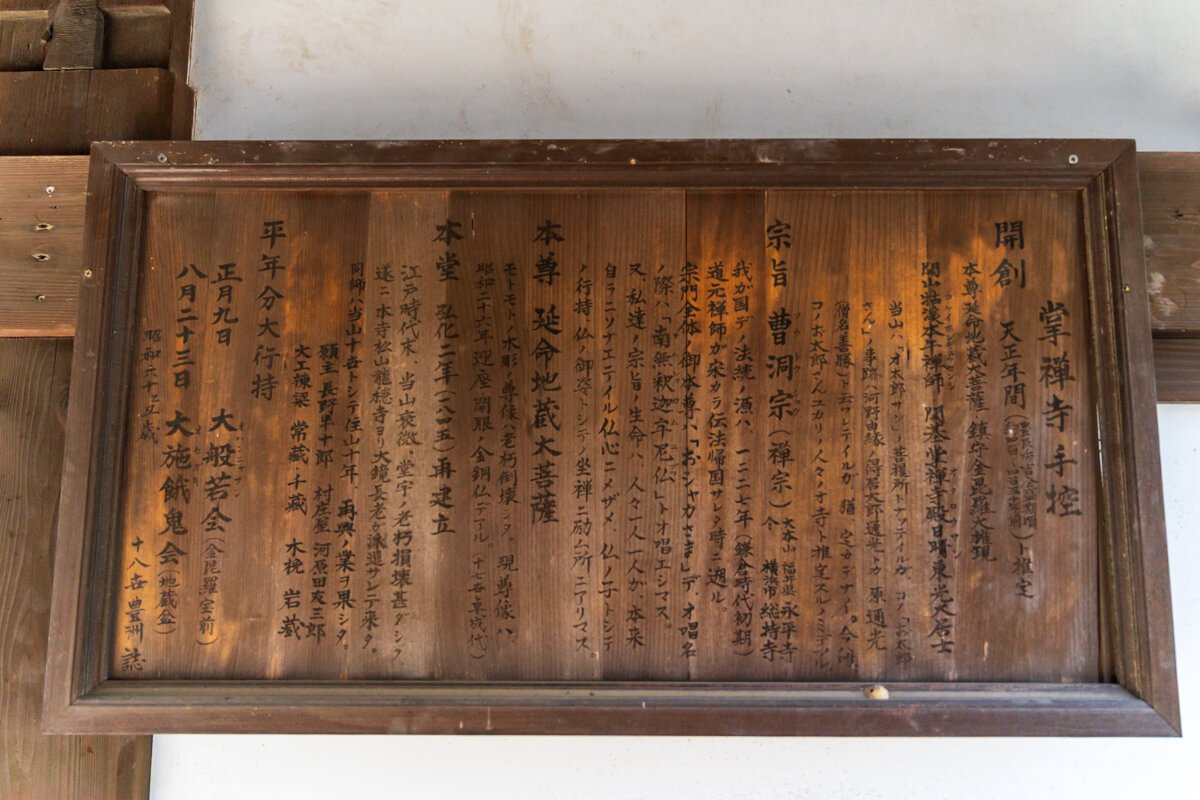 掌禅寺手控
開創 天正年間 ト推定
本尊 延命地蔵大菩薩 鎮守金毘羅大権現
開山 禅師 開基掌禅寺殿日晴東光大居士
当山ハ、オ太郎サン」ノ菩提所トナツテイルガ、コノ「お太郎
さん」ノ事跡ハ河野田縁ノ得居太郎通光
コノお太郎さんユカリノ人々ノオ寺ト推定スルノミデアル
宗旨 曹洞宗(禅宗) 大本山 福井県永平寺 横浜市総持寺
我が国デノ法統ノ源ハ、一二二七年(鎌倉時代初期)
道元禅師が宋カラ伝法帰国サレタ時ニ遡ル。
宗門全体ノ御本尊ハ「おシャカさま」デ、オ唱名
ノ際ハ「南無釈迦牟尼仏」トオ唱エシマス。
又、私達ノ宗旨ノ生命ハ、人々一人一人が、本来
自ラニソナエテイル仏心ニメザメ、仏ノ子トシテ
ノ行持、仏ノ御姿トシテノ坐禅ニ励ム所ニアリマス。
本尊 延命地蔵大菩薩
モトモトノ木彫ノ尊像ハ老朽倒壊シタ。現尊像ハ
昭和二十六年迎座開眼ノ金銅仏デアル。(十七世 代)
本堂 弘化二年(一八四五)再建立
江戸時代末、当山衰微、堂宇ノ老朽損壊甚ダシク、
遂ニ本寺 龍穏寺ヨリ大鏡長老が派遣サレテ来タ。
同師ハ当山十世トシテ住山十年、再興ノ業ヲ果シタ。
願主 長野半十郎 村庄屋 河原田友三郎
大工棟梁 常蔵・千蔵 木挽 岩蔵
平年分大行持
正月九日 大般若会(金毘羅宝前)
八月二十三日 大施餓鬼会(地蔵盆)
十八世 豊洲 誌